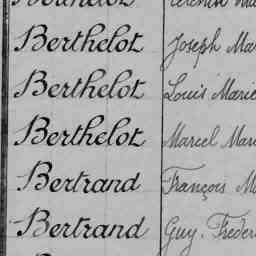 Berthelot Joseph Mar
Berthelot Louis Marie
Berthelot Marcel Mar
Bertrand François M
Bertrand Guy. Freder